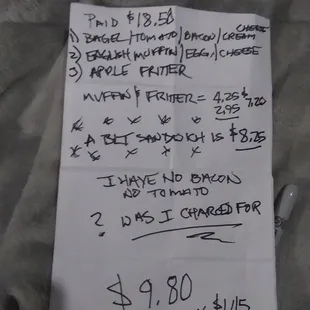 PAID $18.50
1) BAGEL/TOMATO/BACON/CREAM CHEESE
2) ENGLISH MUFFIN/EGG/CHEESE
3) APPLE FRITTER
MUFFIN & FRITTER = 4.25 $7.20
2.95
A BLT SANDWICH IS $8.25
I HAVE NO BACON
NO TOMATO
? WAS I CHARGED FOR
$9.80